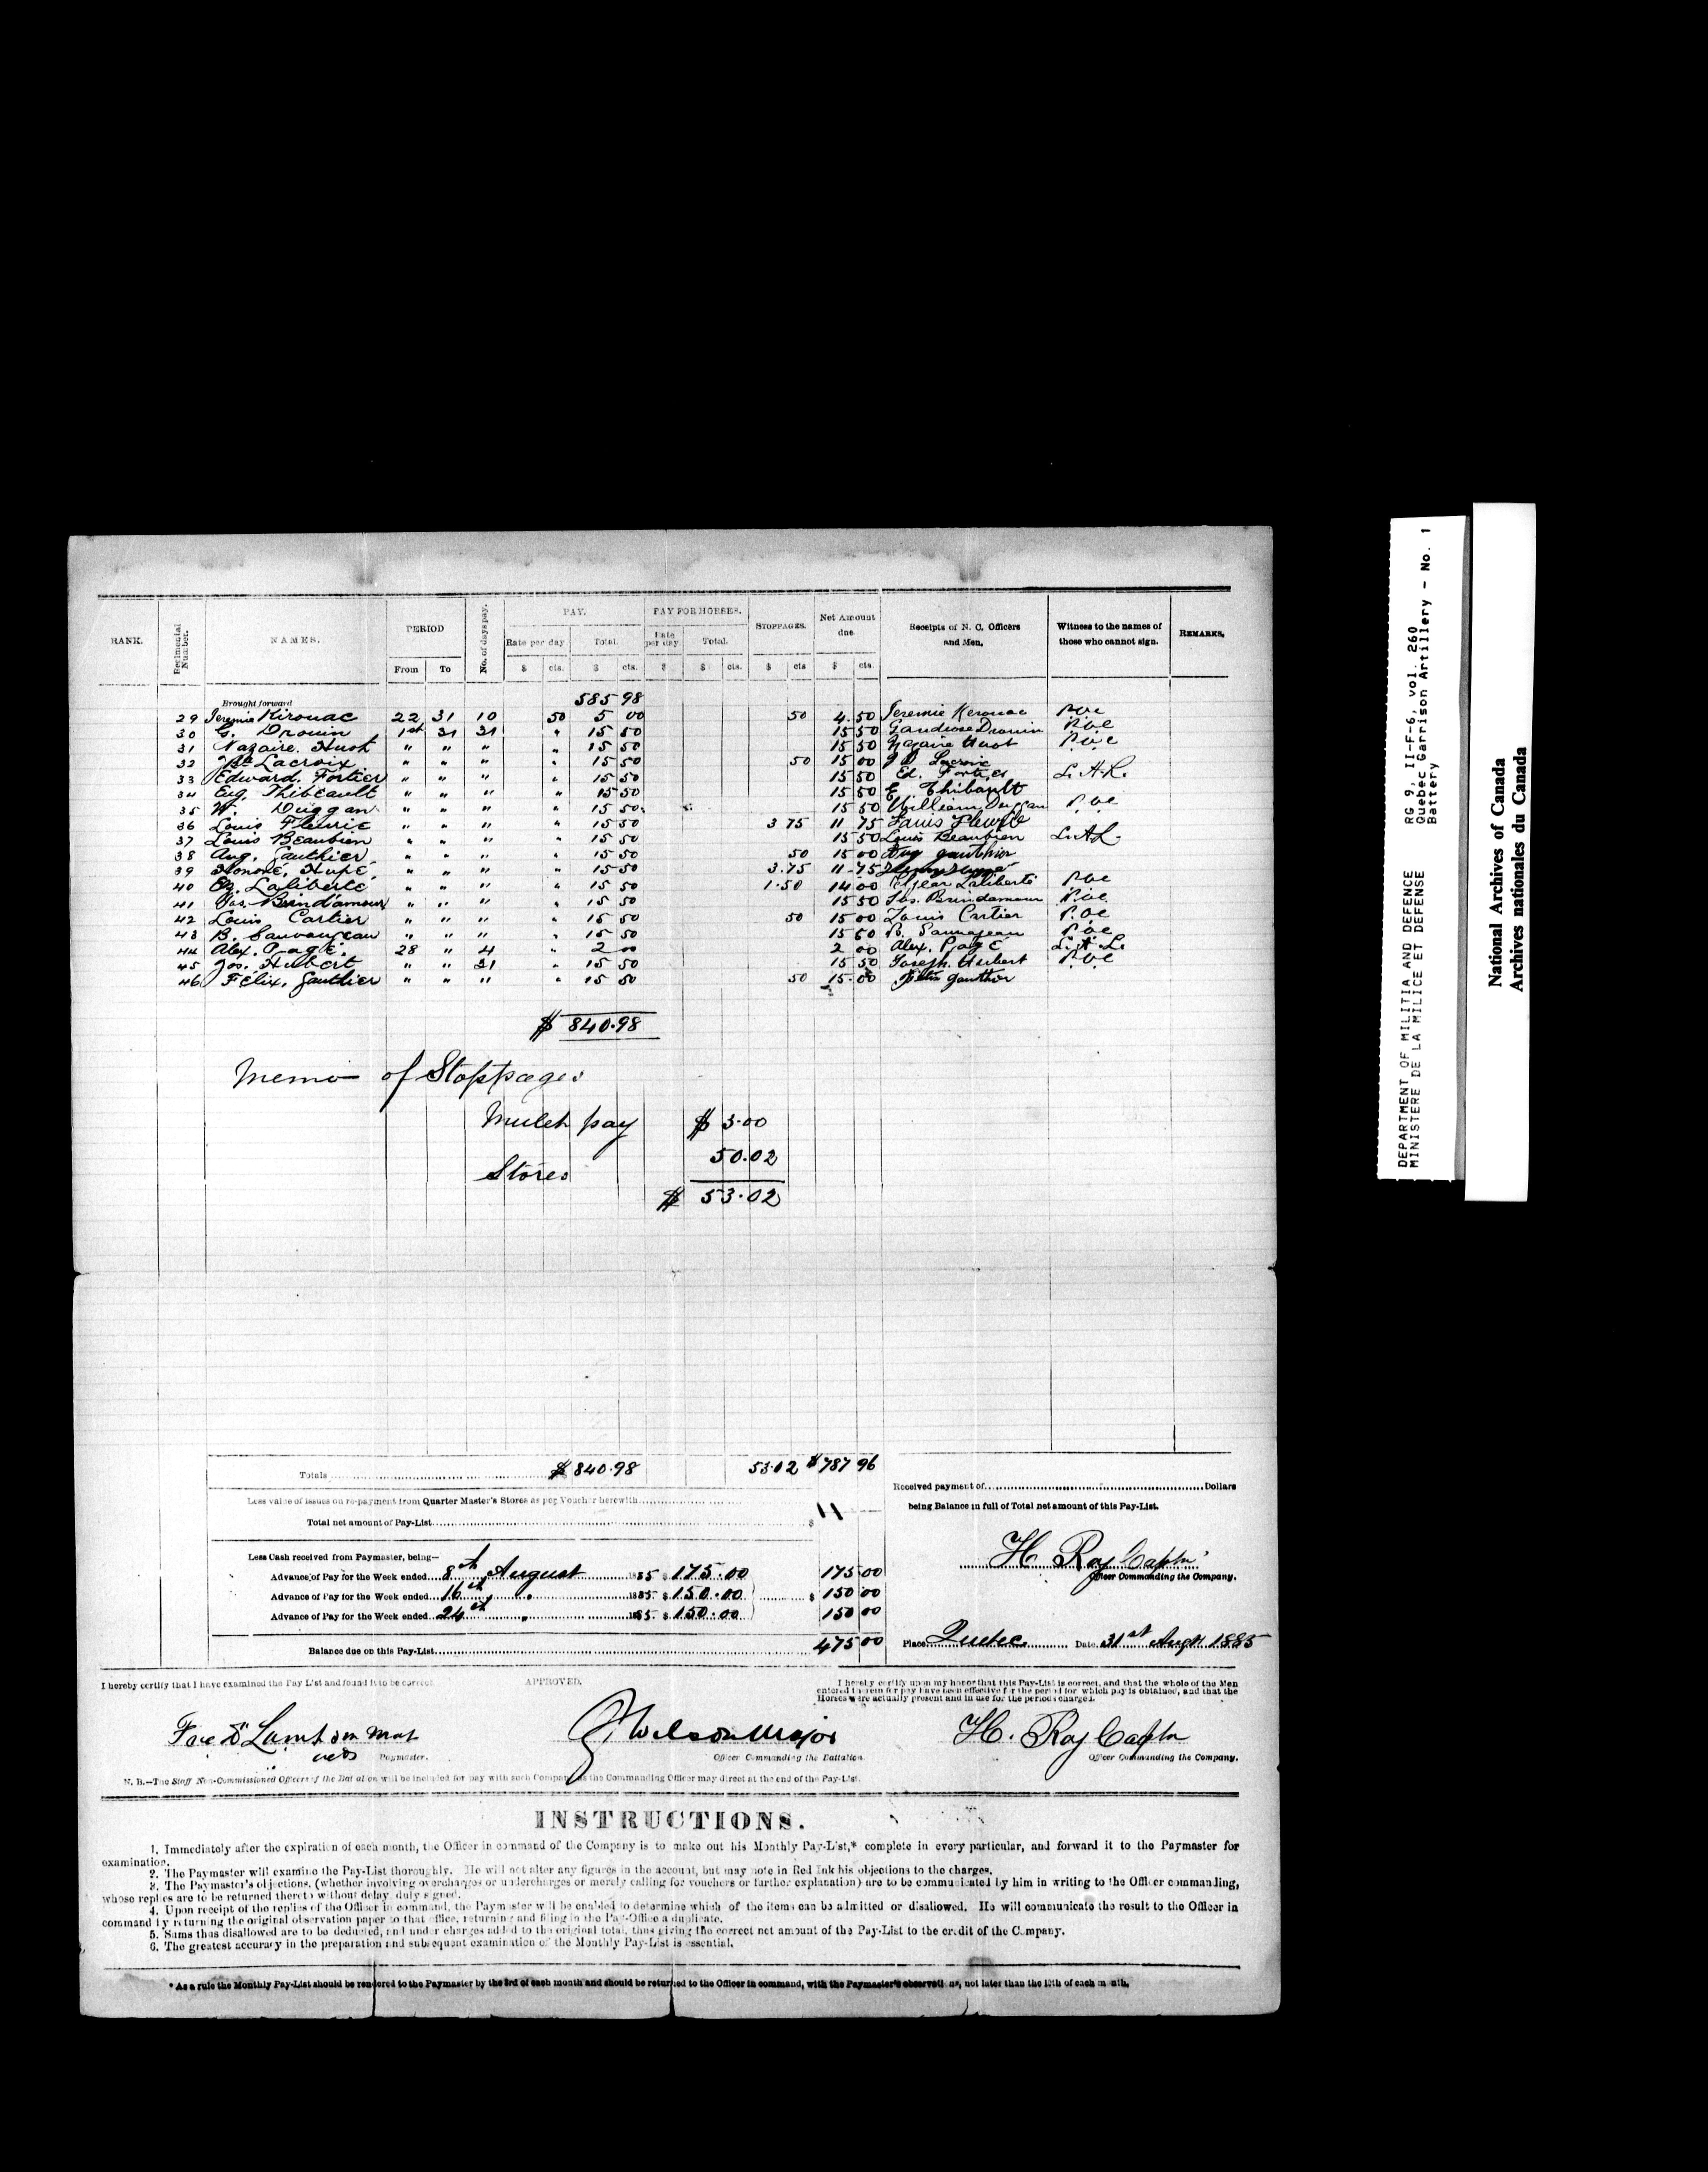 RANK. Regimental Number. NAMES. PERIOD No. of days pay. PAY. PAY FOR HORSES. STOPPAGES. Net Amount due Receipts of N. C. Officers and Men. Witness to the names of those who cannot sign. REMARKS.
From To Rate per day Total. Rate per day. Total.
$ cts. $ cts. $ $ cts. $ cts $ cts.
Brought forward 585 98
29 Jeremie Kirouac 22 31 10 50 5 00 50 4.50 Jeremie Kerouac
30 G. Drouin 1st 31 31 " 15 50 15 50 Gaudiose Drouin
31 Nazaire. " " " " 15 50 15 50 Nazaire
32 Lacroix " " " " 15 50 50 15 00 Lacroix
33 Edward. Fortier " " " " 15 50 15 50 Ed. Fortier L. A. L.
34 Eug. Thibeault " " " " 15 50 15 50 E Thibault
35 W. Duggan " " " " 15 50 15 50 William Duggan
36 Louis Fleurie " " " " 15 50 3 75 11 75
37 Louis Beaubien " " " " 15 50 15 50 Louis Beaubien L. A L.
38 Aug. Gauthier " " " " 15 50 50 15 00 Aug gauthier
39 Honoré. Hupé. " " " " 15 50 3.75 11.75
40 Laliberté " " " " 15 50 1.50 14 00 Elzear Laliberté
41 Jos. Brind'amour " " " " 15 50 15 50 Jos. Brindamour
42 Louis Cartier " " " " 15 50 50 15 00 Louis Cartier
43 B. Sauvageau " " " " 15 50 15 50 B. Sauvageau
44 Alex. Pagé. 28 " 4 " 2 00 2 00 Alex. Pagé L. A. L.
45 Jos. Hubert " " 31 " 15 50 15 50 Joseph. Hubert
46 Félix. Gauthier " " " " 15 50 50 15.00 Gauthier
$ 840.98
Memo of Stoppages
Mulct pay $ 3.00
Stores 50.02
$ 53.02
Totals $ 840.98 53.02 $ 787 96
Less value of issues on re-payment from Quarter Master's Stores as per Voucher herewith
Total net amount of Pay-List $ "
Less Cash received from Paymaster, being—
Advance of Pay for the Week ended 8th August 1885 $ 175.00 175 00
Advance of Pay for the Week ended 16th " 1885 $ 150.00 $ 150 00
Advance of Pay for the Week ended 24th " 1885 $ 150.00 150 00
Balance due on this Pay-List 475 00
Received payment of Dollars
being Balance in full of Total net amount of this Pay-List.
H Roy Captn
Officer Commanding the Company.
Place Quebec Date 31st Augt 1885
I hereby certify that I have examined the Pay List and found it to be correct.
APPROVED.
I hereby certify upon my honor that this Pay-List is correct, and that the whole of the Men
entered therein for pay have been effective for the period for which pay is obtained, and that the
Horses were actually present and in use for the periods charged.
Paymaster.
Wilson Major
Officer Commanding the Battalion.
H. Roy Captn
Officer Commanding the Company.
N. B.—The Staff Non-Commissioned Officers of the Battalion will be included for pay with such Company as the Commanding Officer may direct at the end of the Pay-List.
INSTRUCTIONS.
1. Immediately after the expiration of each month, the Officer in command of the Company is to make out his Monthly Pay-List,* complete in every particular, and forward it to the Paymaster for
examination.
2. The Paymaster will examine the Pay-List thoroughly. He will not alter any figures in the account, but may note in Red Ink his objections to the charges.
3. The Paymaster's objections, (whether involving overcharges or undercharges or merely calling for vouchers or further explanation) are to be communicated by him in writing to the Officer commanding,
whose replies are to be returned thereto without delay, duly signed.
4. Upon receipt of the replies of the Officer in command, the Paymaster will be enabled to determine which of the items can be admitted or disallowed. He will communicate the result to the Officer in
command by returning the original observation paper to that office, returning and filing in the Pay-Office a duplicate.
5. Sums thus disallowed are to be deducted, and under charges added to the original total, thus giving the correct net amount of the Pay-List to the credit of the Company.
6. The greatest accuracy in the preparation and subsequent examination of the Monthly Pay-List is essential.
* As a rule the Monthly Pay-List should be rendered to the Paymaster by the 3rd of each month and should be returned to the Officer in command, with the Paymaster's observations, not later than the 10th of each month.
DEPARTMENT OF MILITIA AND DEFENCE RG 9, II-F-6, vol. 260
MINISTERE DE LA MILICE ET DEFENSE Quebec Garrison Artillery - No. 1
Battery
National Archives of Canada
Archives nationales du Canada